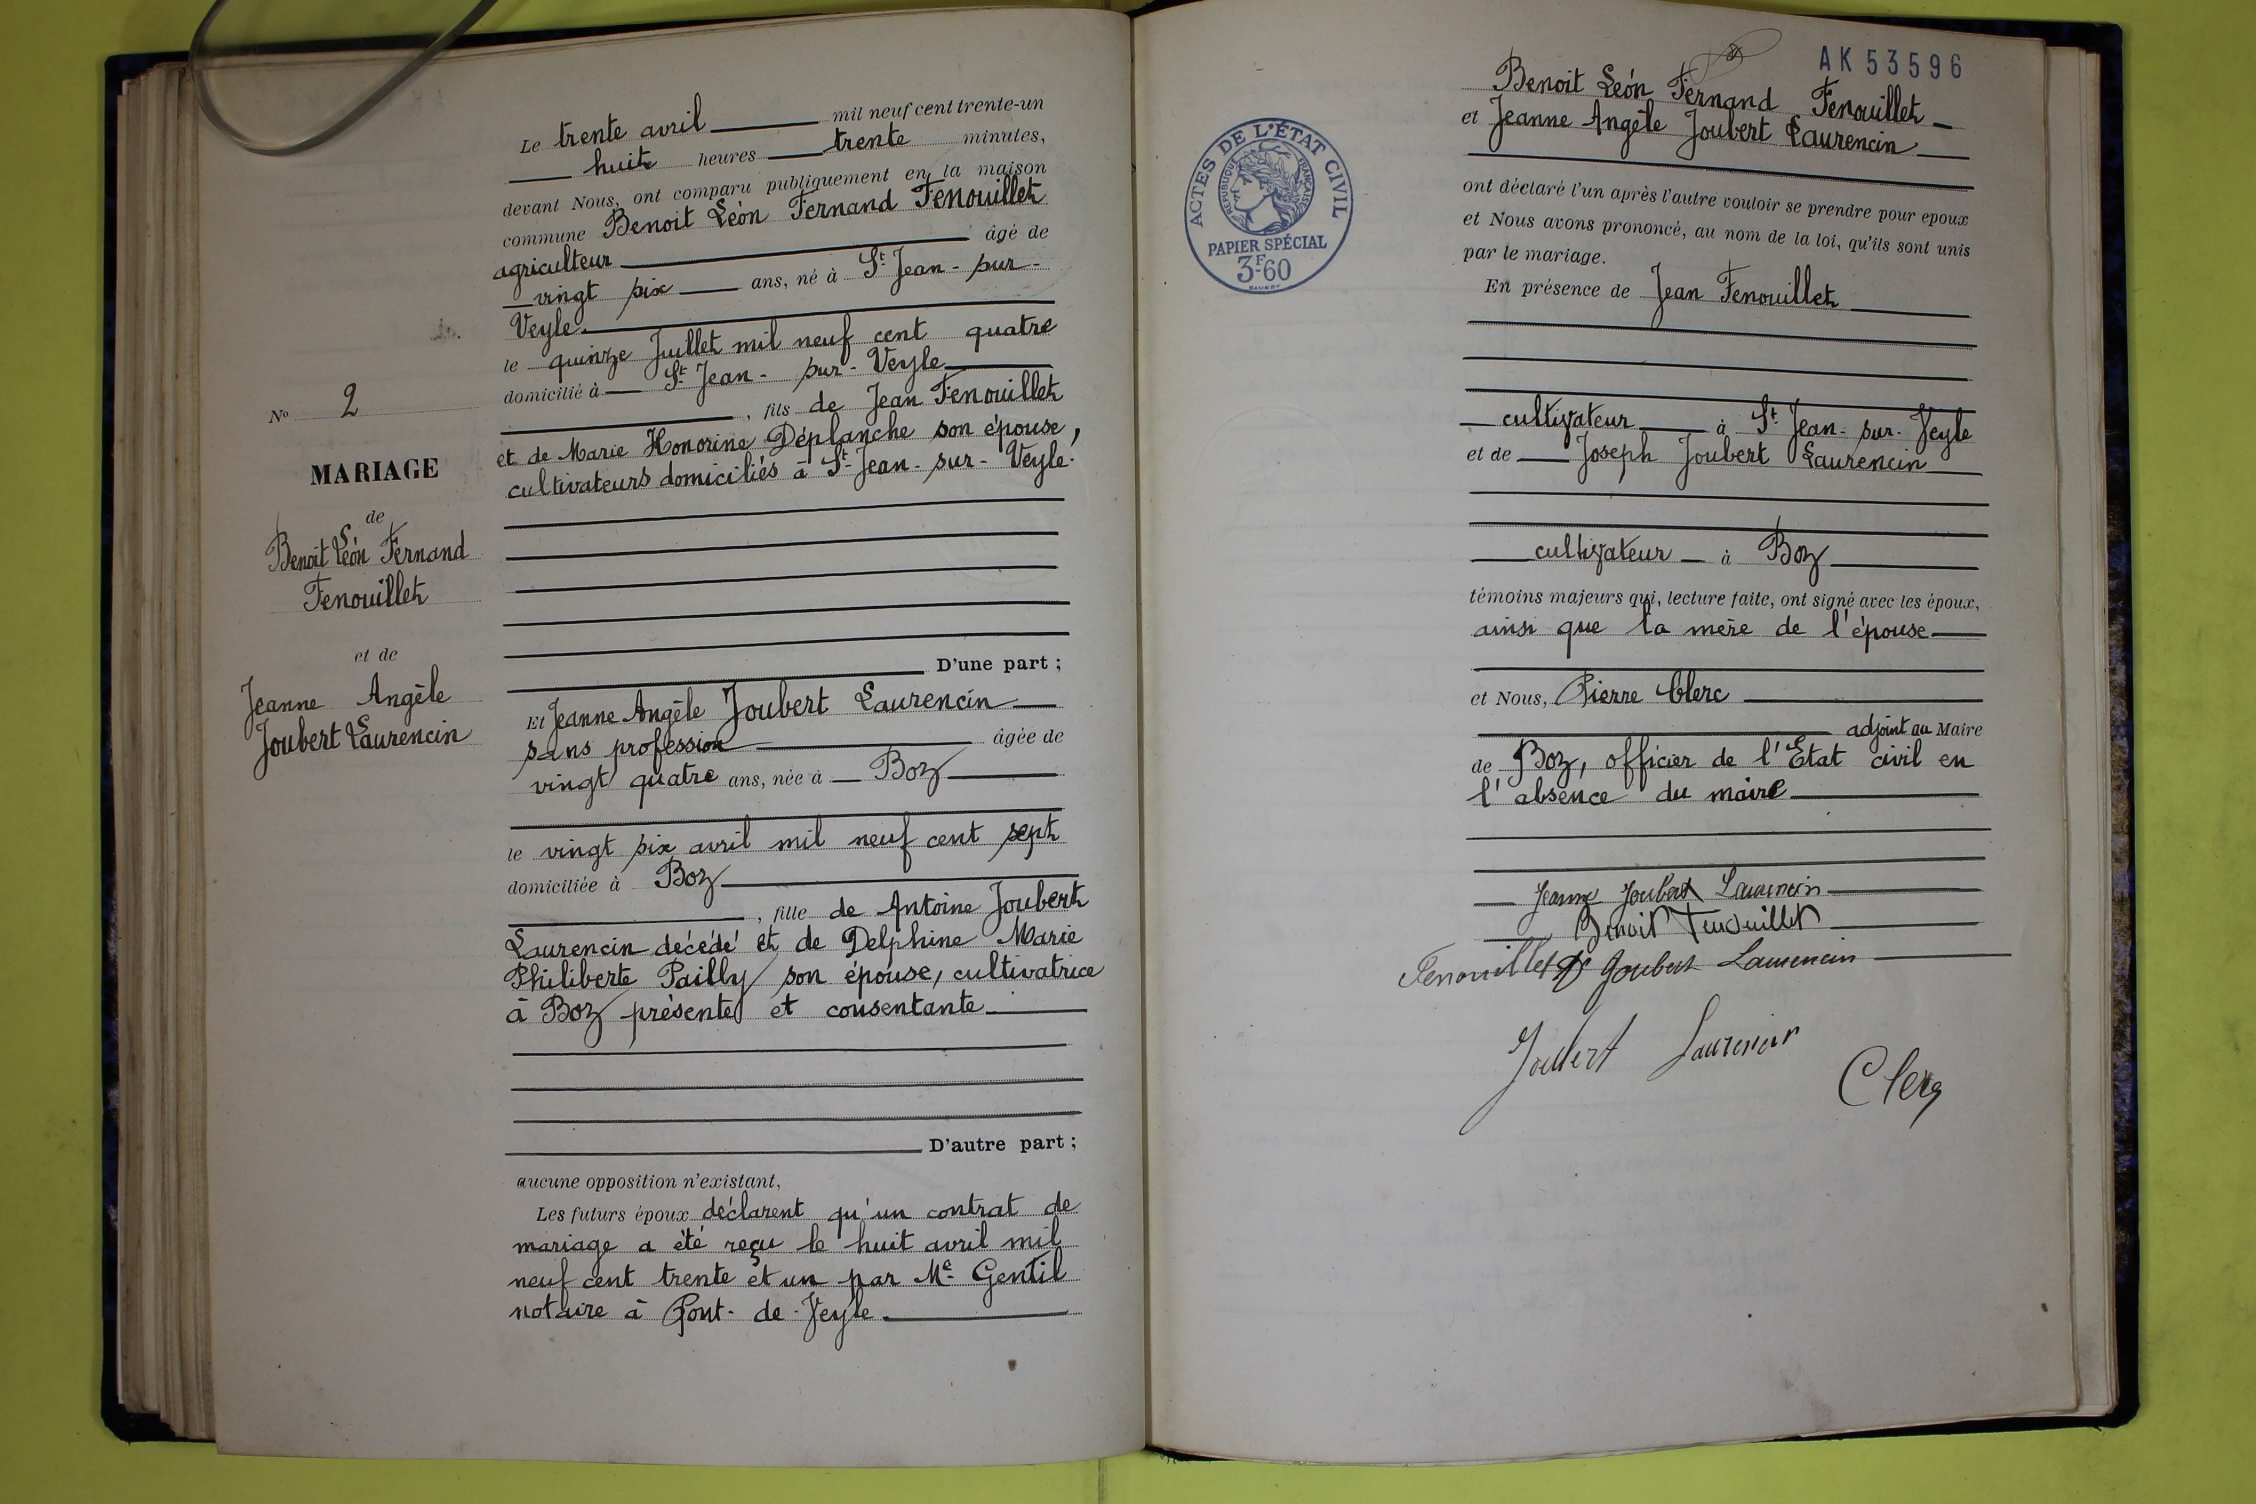 N° 2
MARIAGE
de
Benoit Léon Fernand
Fenouillet
et de
Jeanne Angèle
Joubert Laurencin
Le trente avril mil neuf cent trente-un
huit heures trente minutes,
devant Nous, ont comparu publiquement en la maison
commune Benoit Léon Fernand Fenouillet
agriculteur âgé de
vingt six ans, né à St Jean-sur-
Veyle
le quinze Juillet mil neuf cent quatre
domicilié à St Jean-sur-Veyle
, fils de Jean Fenouillet
et de Marie Honorine Déplanche son épouse,
cultivateurs domiciliés à St-Jean-sur-Veyle.
D'une part ;
Et Jeanne Angèle Joubert Laurencin
sans profession âgée de
vingt quatre ans, née à Boz
le vingt six avril mil neuf cent sept
domiciliée à Boz
, fille de Antoine Joubert
Laurencin décédé et de Delphine Marie
Philiberte Pailly son épouse, cultivatrice
à Boz présente et consentante
D'autre part ;
aucune opposition n'existant,
Les futurs époux déclarent qu'un contrat de
mariage a été reçu le huit avril mil
neuf cent trente et un par Me Gentil
notaire à Pont-de-Veyle
AK 53596
ACTES DE L'ÉTAT CIVIL
RÉPUBLIQUE FRANÇAISE
PAPIER SPÉCIAL
3F60
Benoit Léon Fernand Fenouillet
et Jeanne Angèle Joubert Laurencin
ont déclaré l'un après l'autre vouloir se prendre pour epoux
et Nous avons prononcé, au nom de la loi, qu'ils sont unis
par le mariage.
En présence de Jean Fenouillet
cultivateur à St Jean-sur-Veyle
et de Joseph Joubert Laurencin
cultivateur à Boz
témoins majeurs qui, lecture faite, ont signé avec les époux,
ainsi que la mère de l'épouse
et Nous, Pierre Clerc
adjoint au Maire
de Boz, officier de l'Etat civil en
l'absence du maire
Jeanne Joubert Laurencin
Benoit Fenouillet
Fenouillet Joubert Laurencin
Joubert Laurencin
Clerc